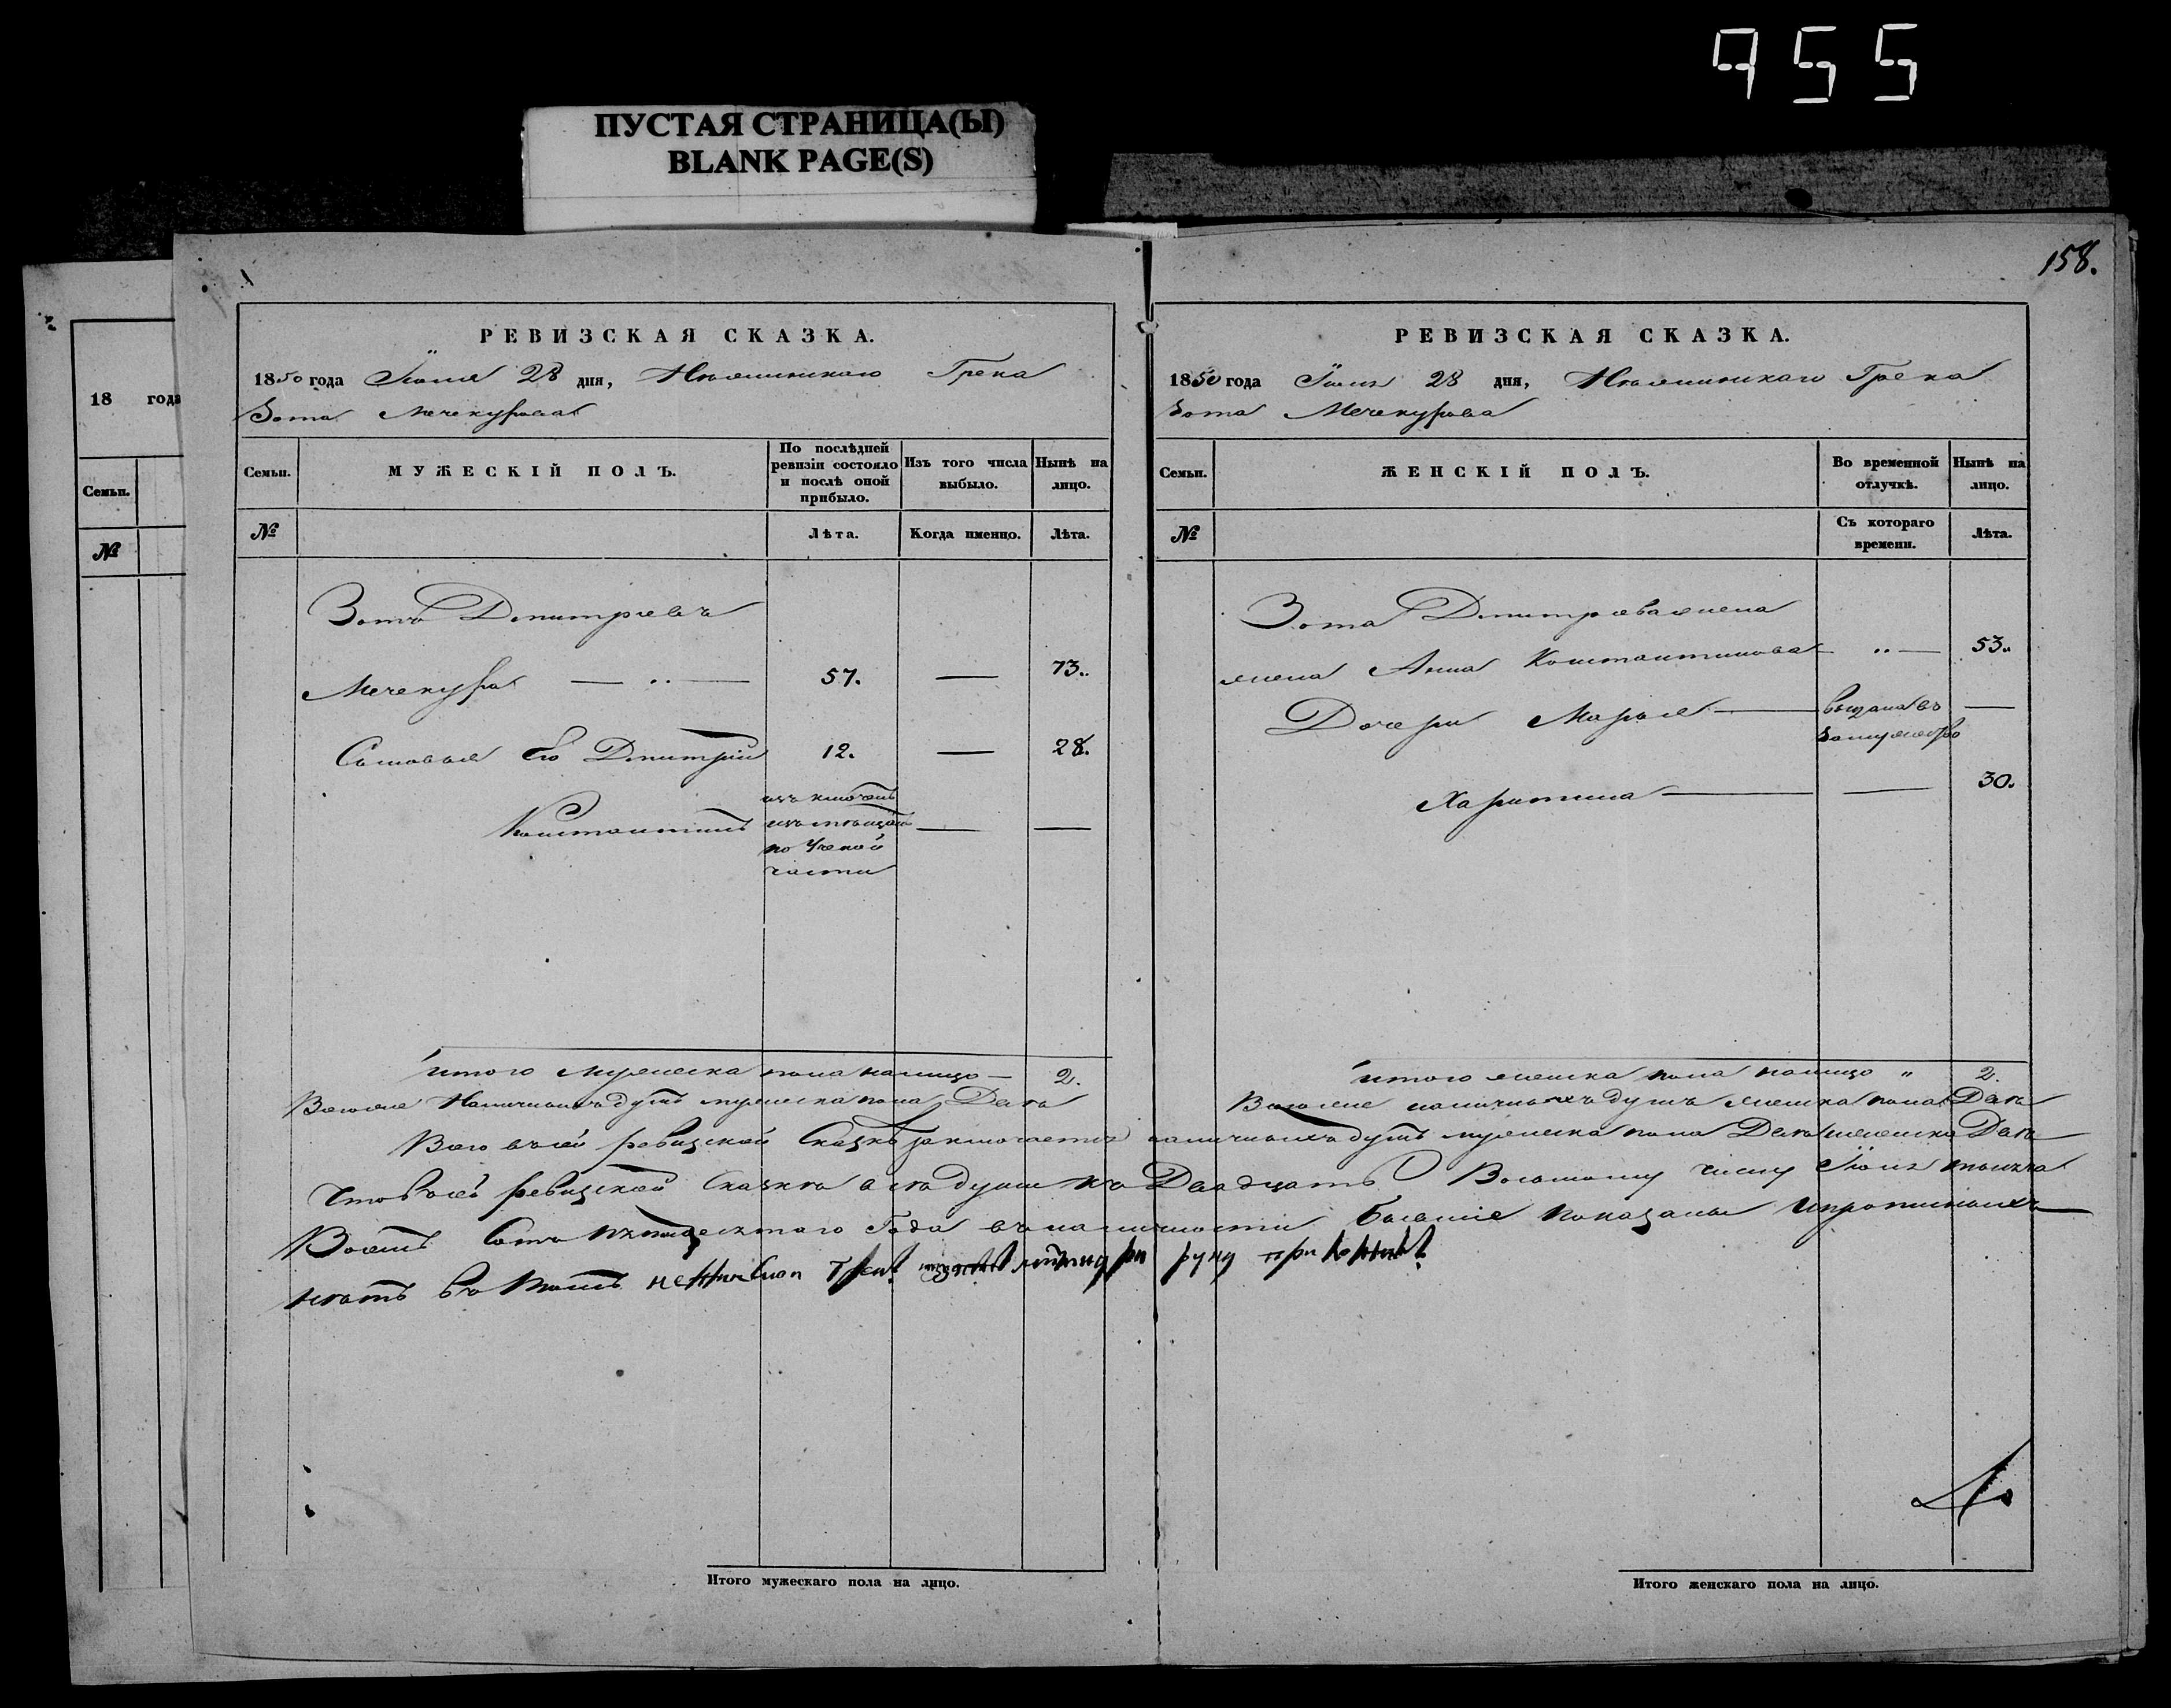 955
ПУСТАЯ СТРАНИЦА(Ы)
BLANK PAGE(S)
158.
18 года
Семьи.
№
РЕВИЗСКАЯ СКАЗКА.
1850 года Іюля 28 дня, Нѣжинскаго Грека
Зота Мечекурова
Семьи.
МУЖЕСКІЙ ПОЛЪ.
По послѣдней ревизіи состояло и послѣ оной прибыло.
Изъ того числа выбыло.
Нынѣ на лицо.
№
Лѣта.
Когда именно.
Лѣта.
Зотъ Дмитріевъ
Мечекура — „ — 57. — 73.
Сыновья Его Дмитрій 12. — 28.
Константинъ изключенъ — —
по Ученой
части
Итого мужеска пола налицо — 2.
Вагоне Наличныхъ душъ мужеска пола Двѣ
РЕВИЗСКАЯ СКАЗКА.
1850 года Іюля 28 дня, Нѣжинскаго Грека
Зота Мечекурова
Семьи.
ЖЕНСКІЙ ПОЛЪ.
Во временной отлучкѣ.
Нынѣ на лицо.
№
Съ котораго времени.
Лѣта.
Зота Дмитрева жена
жена Анна Константинова — „ — 53.
Дочери Марья — выдана въ —
замужество
Харитина — — 30.
Итого женска пола налицо „ 2.
наличныхъ душъ женска пола Двѣ
Всего въсей ревизской Сказкѣ заключается наличныхъ душъ мужеска пола Двѣ женска Двѣ
Что въсей ревизской Сказкѣ всѣ души къ Двадцать Восьмому числу Іюля тысяча
Восемь Сотъ пятидесятаго Года въ наличности бывшіе показаны и прописныхъ
нѣтъ въ томъ
руку приложил
Итого мужескаго пола на лицо.
Итого женскаго пола на лицо.